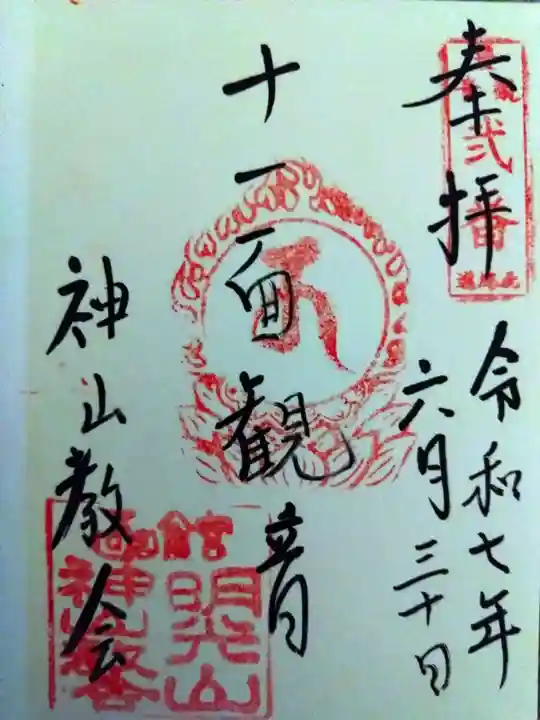 奉拝
令和七年
六月三十日
弐番
十一面観音
神山教会
明光山
神山教会